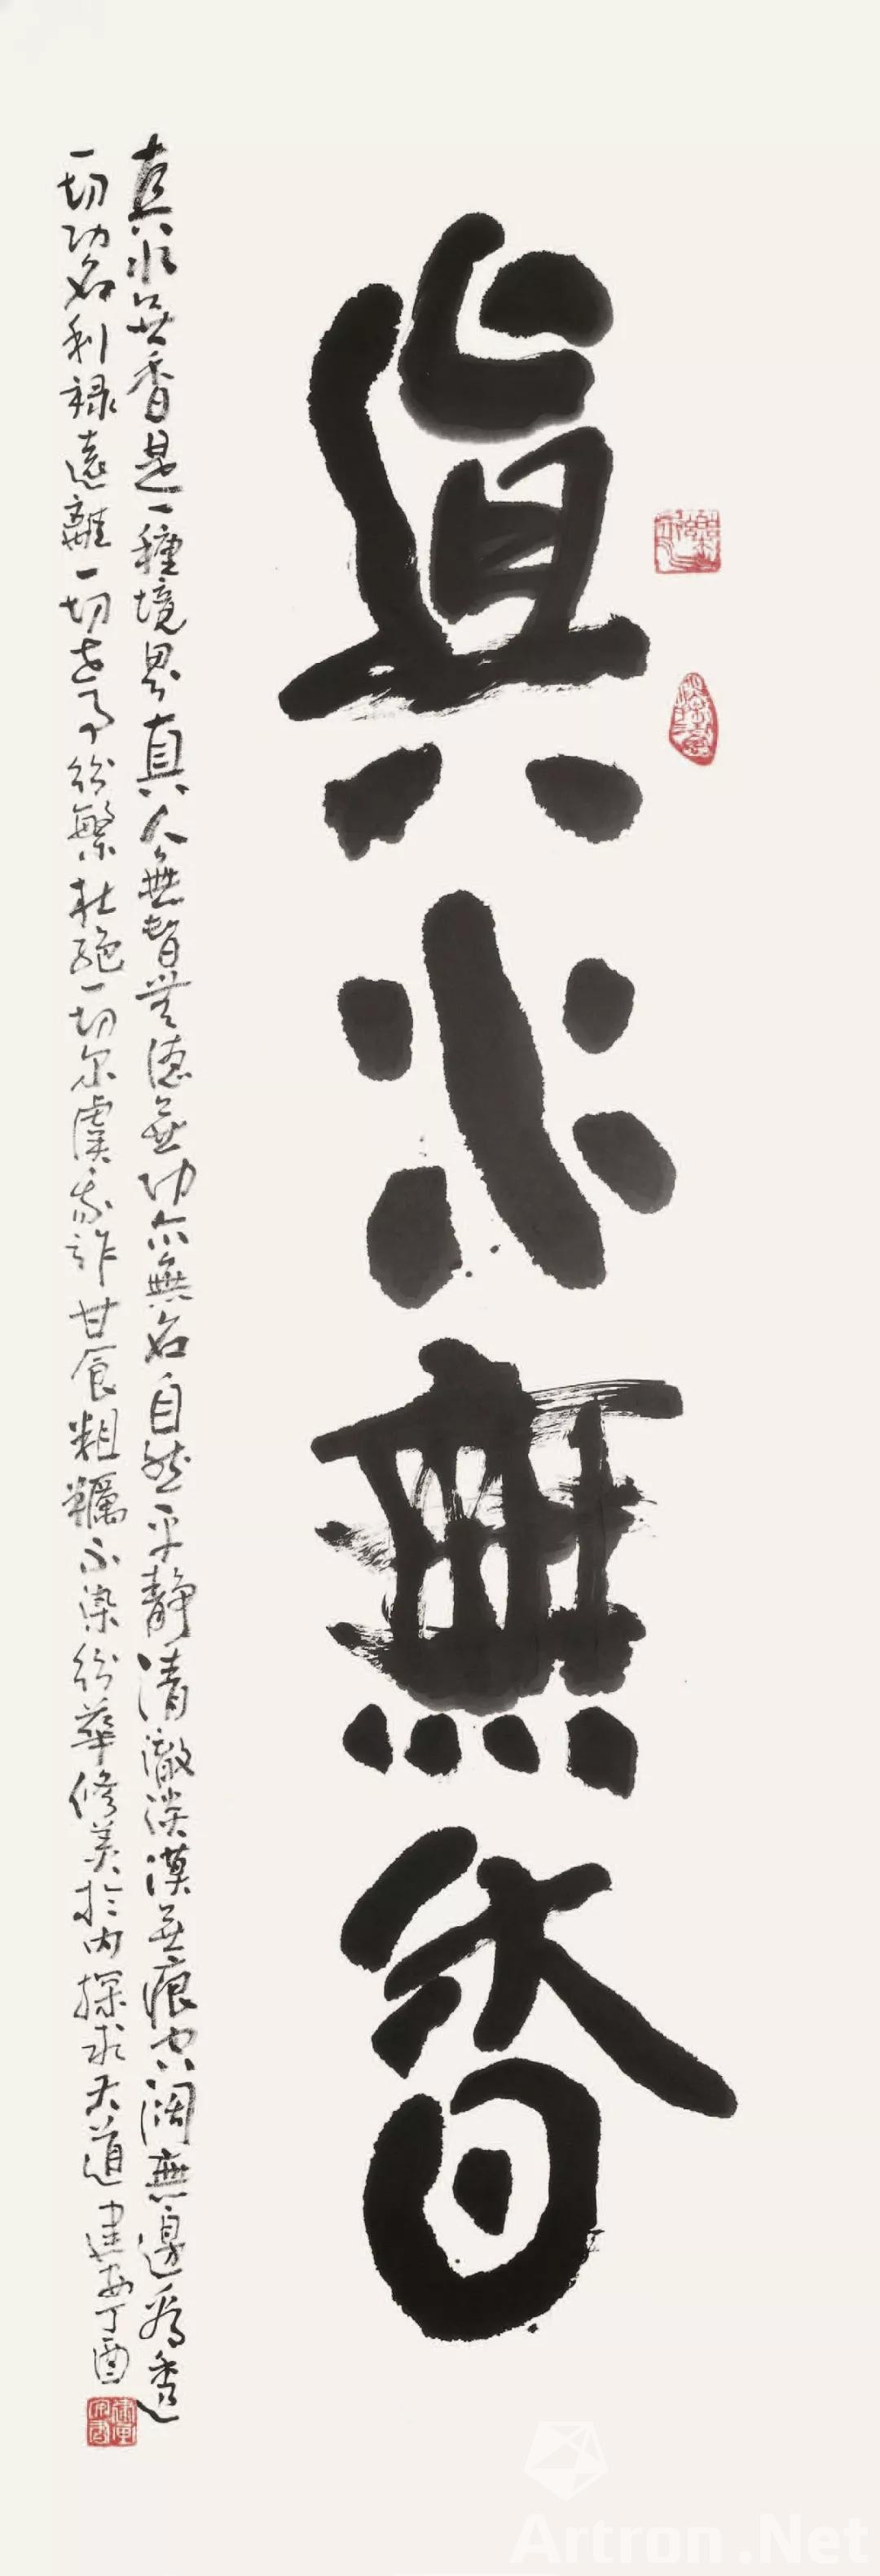 真水無香
真水無香是一種境界真人無智無德無功亦無名自然平静清澈淡漠無痕空阔無邊為香追
一切功名利禄遠離一切世事紛繁杜絶一切尔虞我詐甘食粗糲不染紛華修美於内探求大道建安丁酉
Artron.Net